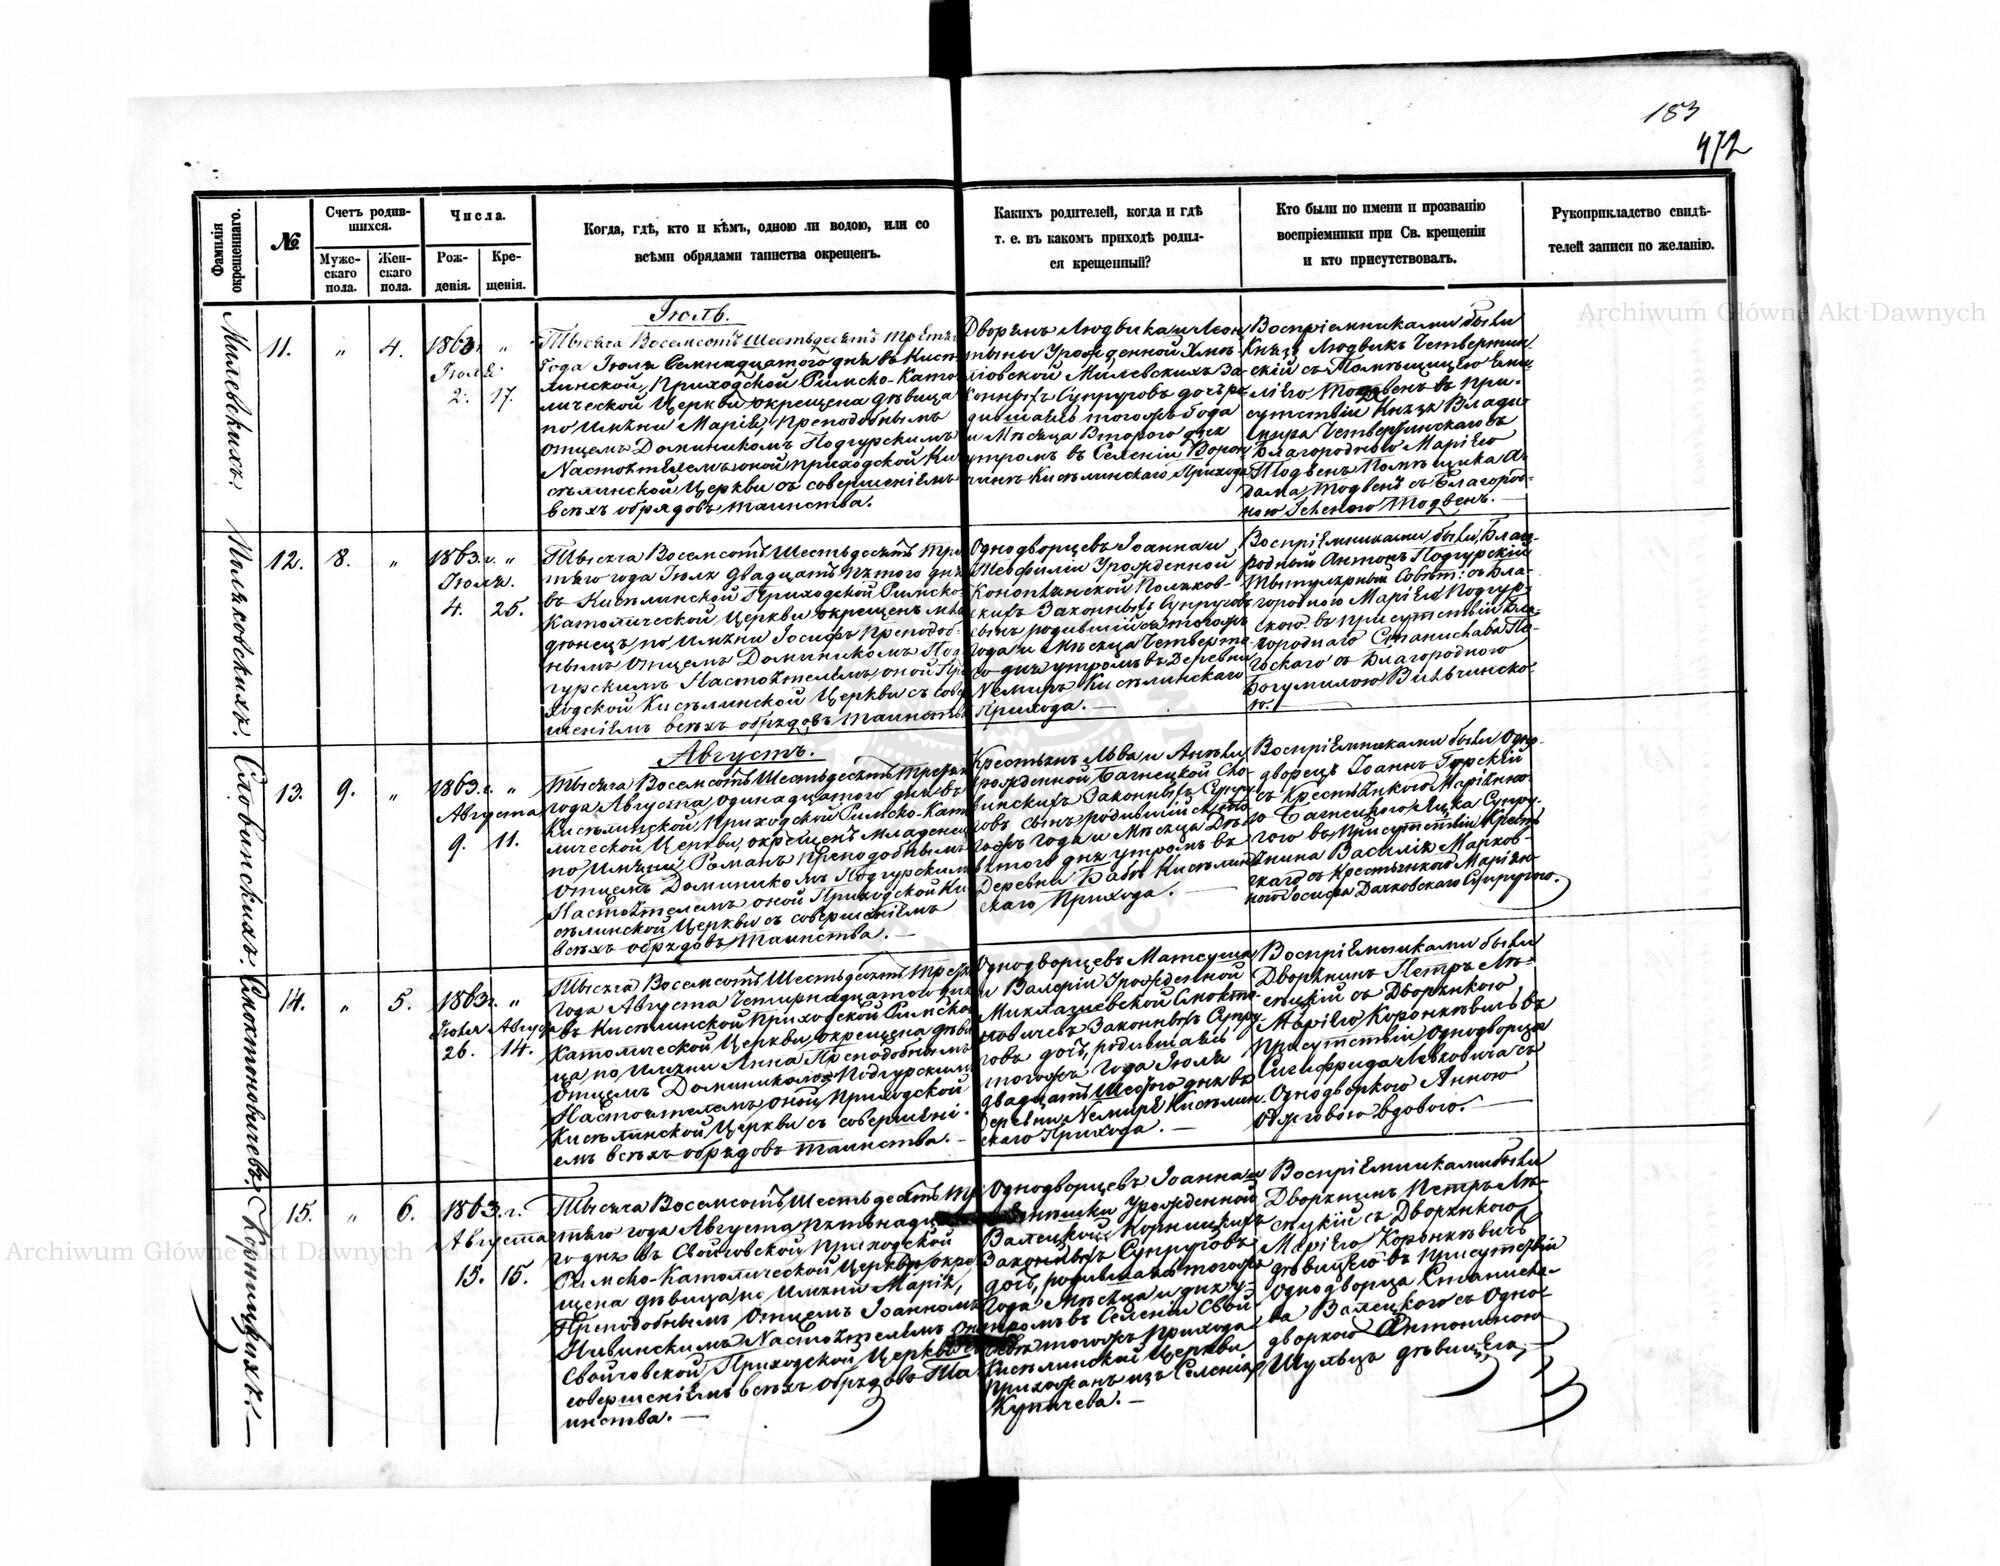 183
472
Фамилія окрещеннаго.
№
Счетъ родившихся.
Мужескаго пола.
Женскаго пола.
Числа.
Рожденія.
Крещенія.
Когда, гдѣ, кто и кѣмъ, одною ли водою, или со
всѣми обрядами таинства окрещенъ.
Какихъ родителей, когда и гдѣ
т. е. въ какомъ приходѣ родил-
ся крещенный?
Кто были по имени и прозванію
воспріемники при Св. крещеніи
и кто присутствовалъ.
Рукоприкладство свидѣ-
телей записи по желанію.
Archiwum Główne Akt Dawnych
Милевскихъ.
11.
"
4.
1863г. "
Іюля
2. 17.
Іюль.
Тысяча Восемсотъ Шестьдесятъ Третьяго
Года Іюля Семнадцатого дня въ Кисѣ-
линской Приходской Римско-Като-
лической Церкви окрещена дѣвица
по Имени Марія, Преподобнымъ
Отцемъ Доминикомъ Подгурскимъ
Настоятелемъ оной приходской Ки-
сѣлинской Церкви съ совершеніемъ
всѣхъ обрядовъ таинства.
Дворянъ Людвика и Леон-
тыны Урожденной Хмѣ-
лѣовской Милевскихъ За-
конныхъ Супруговъ дочь ро-
дившаясь тогожъ Года
и Мѣсяца Второго дня
утромъ въ Селеніи Ворон-
чинѣ Кисѣлинскаго Прихода
Воспріемниками были
Князь Людвикъ Четвертин-
скій съ Помѣщицею Еми-
ліею Тодвенъ въ при-
сутствіи Князя Влади-
мира Четвертинскаго съ
Благородною Маріею
Тодвенъ Помѣщика А-
дама Тодвенъ съ Благород-
ною Геленою Тодвенъ.
Поляковскихъ.
12.
8.
"
1863.г. "
Іюля.
4. 25.
Тысяча Восемсотъ Шестьдесятъ Тре-
тьяго года Іюля двадцать пятого дня
въ Кисѣлинской Приходской Римско-
Католической Церкви окрещенъ мла-
денецъ по Имени Іосифъ Преподоб-
нымъ Отцемъ Доминикомъ Под-
гурскимъ Настоятелемъ оной При-
ходской Кисѣлинской Церкви съ совер-
шеніемъ всѣхъ обрядовъ таинства
Однодворцевъ Іоанна и
Теофиліи Урожденной
Конопянской Поляков-
скихъ Законныхъ Супруговъ
сынъ родившійся тогожъ
года и Мѣсяца Четверта-
го дня утромъ въ Деревни
Немиръ Кисѣлинскаго
Прихода.
Воспріемниками были, Благо-
родный Антонъ Подгурскій
Тытулярный Совѣт: съ Бла-
городною Маріею Подгур-
скою въ присутствіи Бла-
городнаго Станислава По-
съ Благородною
Богумилою Вильчинско-
ю.
Словинскихъ.
13.
9.
"
1863.г. "
Августа
9. 11.
Августъ.
Тысяча Восемсотъ Шестьдесятъ Третьяго
года Августа одинадцатого дня въ
Кисѣлинской Приходской Римско-Като-
лической Церкви, окрещенъ младенецъ
по Имени Романъ Преподобнымъ
Отцемъ Доминикомъ Подгурскимъ
Настоятелемъ оной Приходской Ки-
сѣлинской Церкви съ совершеніемъ
всѣхъ обрядовъ таинства.
Крестьянъ Льва и Анѣли
Урожденной Багнецкой Сло-
винскихъ Законныхъ Супру-
говъ сынъ родившійся то-
гожъ года и Мѣсяца Дев-
ятого дня утромъ въ
Деревни Бабъ Кисѣлин-
скаго Прихода.
Воспріемниками были Одно-
дворецъ Іоаннъ Гурскій
съ Крестьянкою Маріанно-
ю Багнецкого Яцка Супру-
гою въ присутствіи Кресть-
янина Василія Марков-
скаго съ Крестьянкою Маріан-
ною Іосифа Дачковскаго Супругою.
Смоктоновичевъ.
14.
"
5.
1863г. "
Іюля. Августа
26. 14.
Тысяча Восемсотъ Шестьдесятъ Третьяго
Года Августа Четырнадцатого дня
въ Кисѣлинской Приходской Римско-
Католической Церкви, окрещена дѣви-
ца по Имени Анна Преподобнымъ
Отцемъ Доминикомъ Подгурскимъ
Настоятелемъ оной Приходской
Кисѣлинской Церкви съ совершені-
емъ всѣхъ обрядовъ таинства.
Однодворцевъ Матеуша
и Валеріи Урожденной
Миклашевской Смокто-
новичевъ Законныхъ Супру-
говъ дочь, родившаясь
тогожъ Года Іюля
двадцать Шестого дня въ
деревни Немиръ Кисѣлин-
скаго Прихода.
Воспріемниками были
Дворянинъ Петръ Лѣ-
сецкій съ Дворянкою
Маріею Коронкевичъ въ
присутствіи Однодворца
Сигифрида Левковича съ
Однодворкою Анною
вдовою.
Корницкихъ.
15.
"
6.
1863.г.
Августа
15. 15.
Тысяча Восемсотъ Шестьдесятъ Тре-
тьяго года Августа Пятьнадцато-
го дня въ Свойчовской Приходской
Римско-Католической Церкви, окре-
щена дѣвица по Имени Марія,
Преподобнымъ Отцемъ Іоанномъ
Нивинскимъ Настоятелемъ
Свойчовской Приходской Церкви съ
совершеніемъ всѣхъ обрядовъ Та-
инства.
Однодворцевъ Іоанна и
Урожденной
Валецкой Корницкихъ
Законныхъ Супруговъ
дочь, родившаясь тогожъ
Года Мѣсяца и дня у-
тромъ въ Селеніи Свой-
тогожъ Прихода
Кисѣлинской Церкви
прихожанъ изъ Селенія
Купичева.
Воспріемниками были
Дворянинъ Петръ Лѣ-
сецкій съ Дворянкою
Маріею Коронкевичъ
дѣвицею въ присутствіи
Однодворца Станисла-
ва Валецкого съ Одно-
дворкою Антониною
Шульцъ дѣвицею,
Archiwum Główne Akt Dawnych